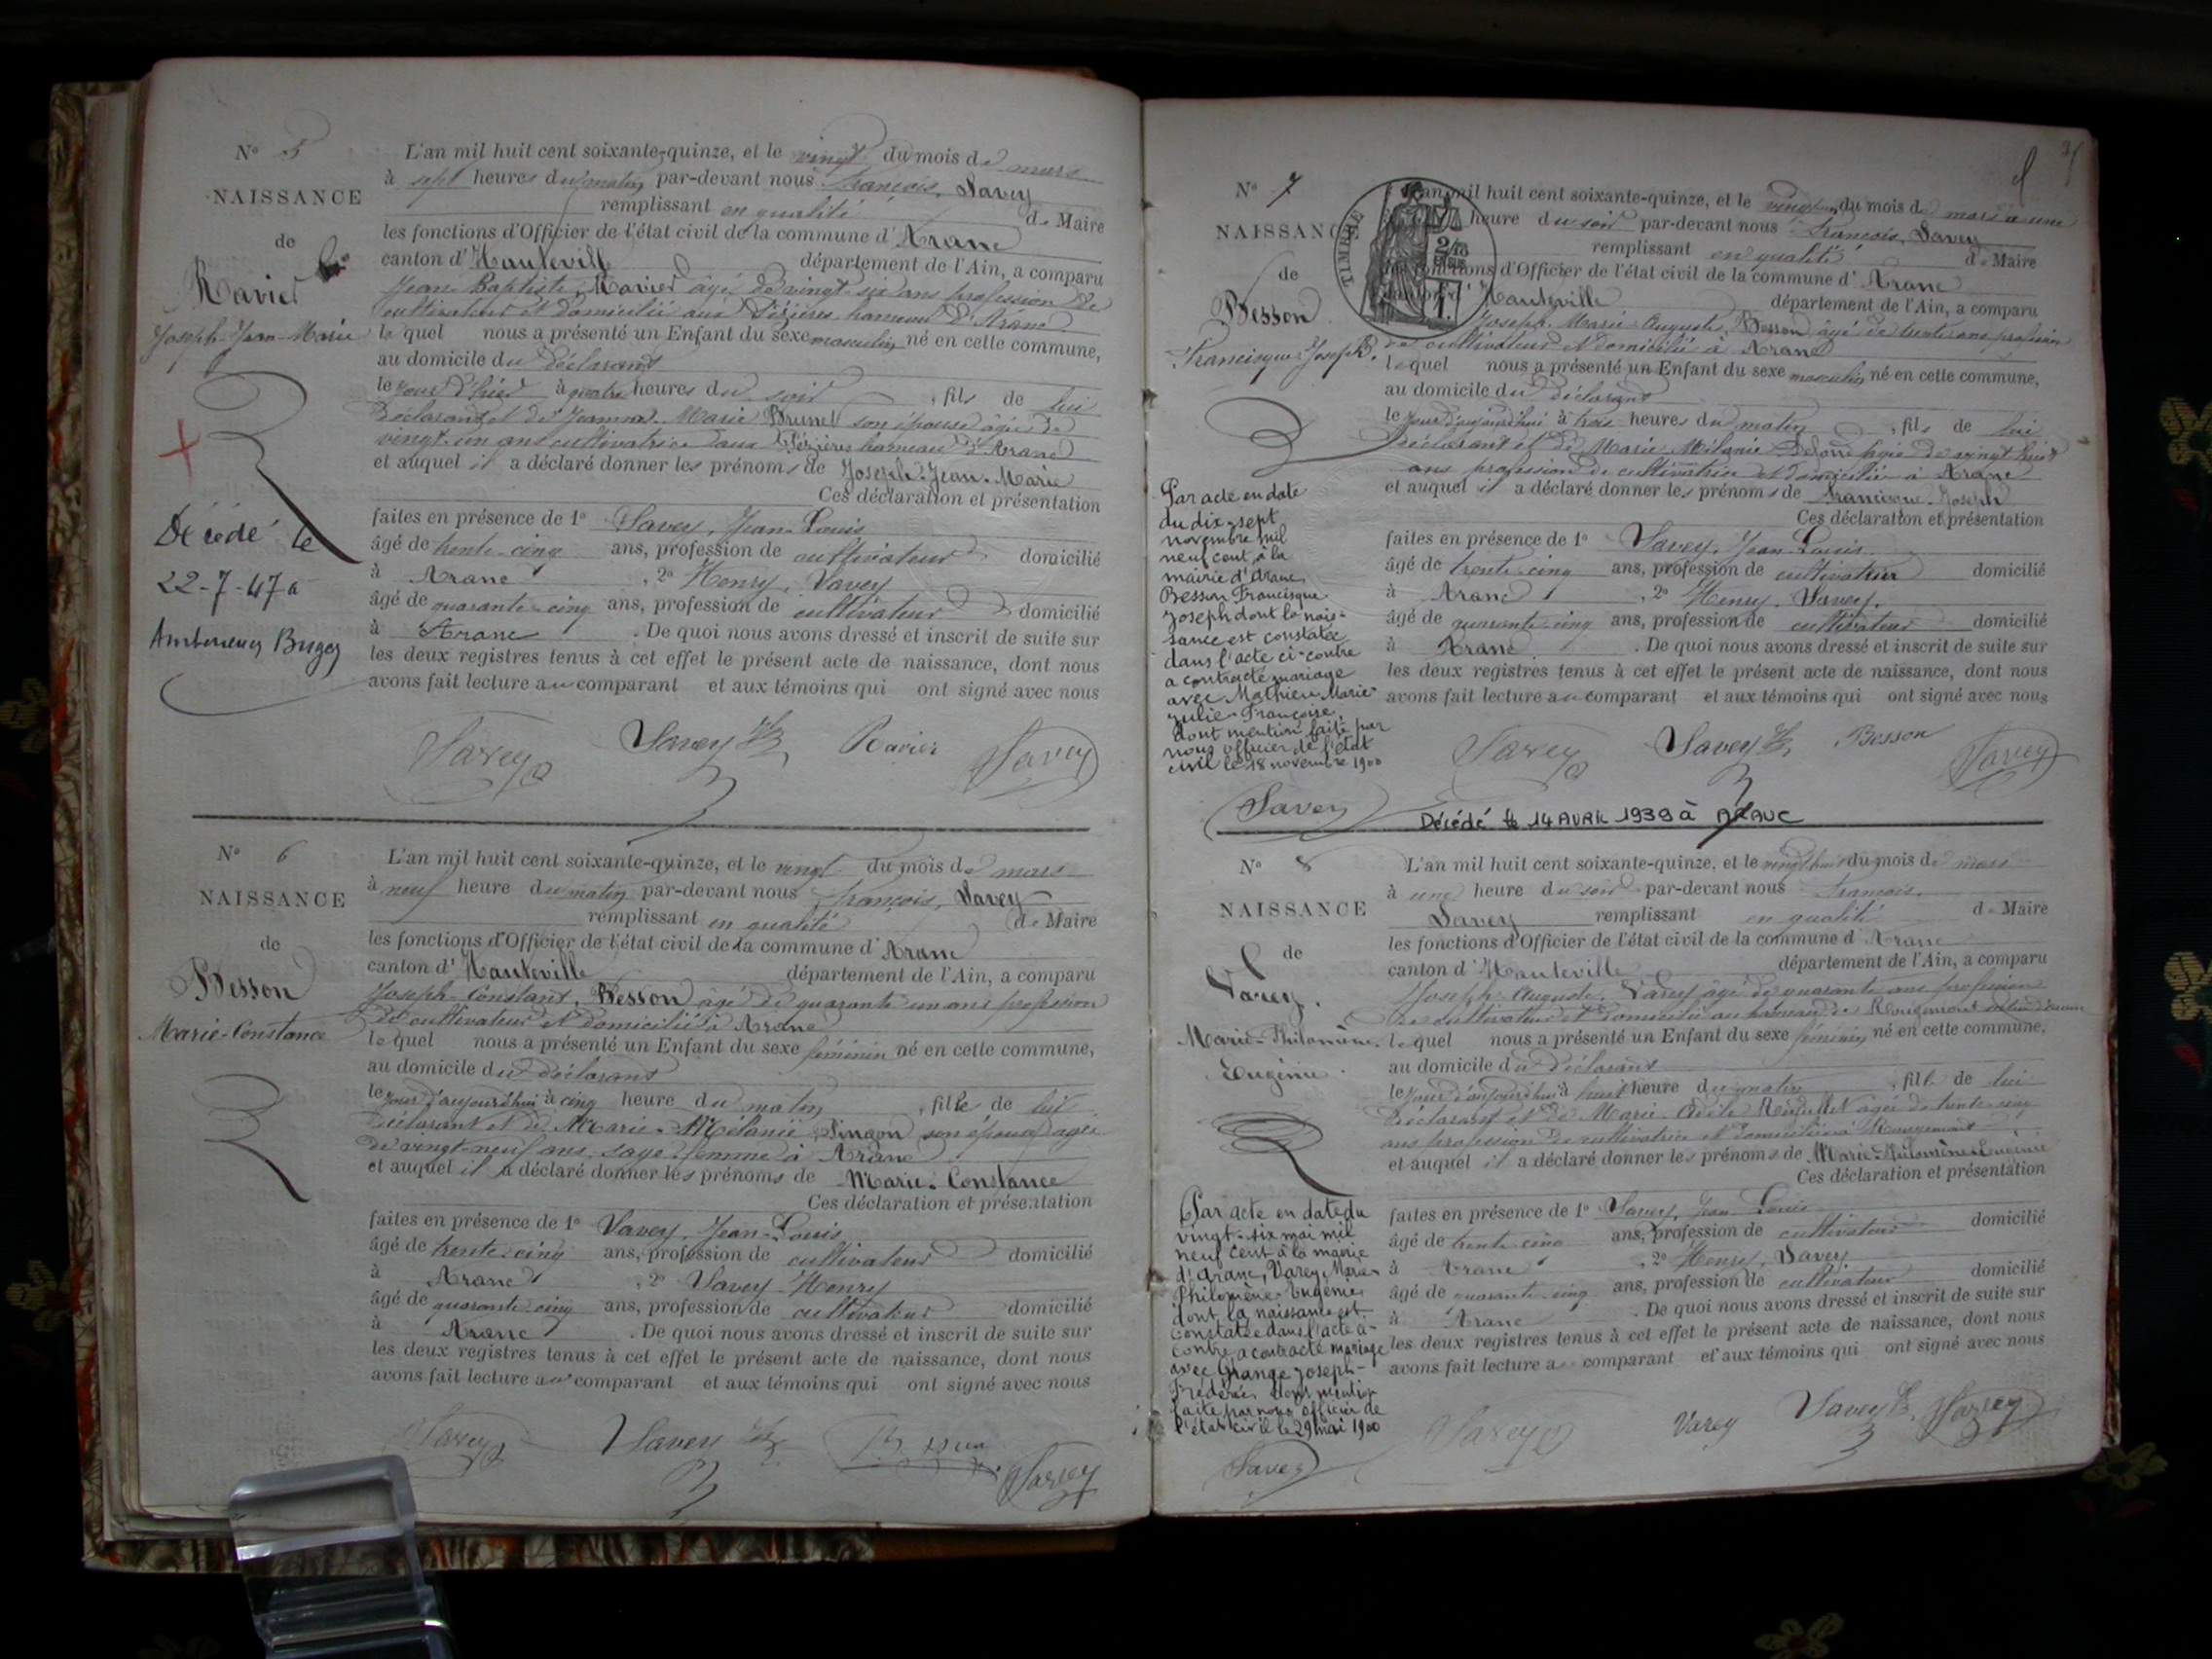 N° 5
NAISSANCE
de
Ravier
Joseph-Jean-Marie
Décédé le
22-7-47 à
Ambérieu Bugey
L'an mil huit cent soixante-quinze, et le vingt du mois de mars
à sept heures du matin par-devant nous François, Savey
remplissant en qualité de Maire
les fonctions d'Officier de l'état civil de la commune d'Aranc
canton d'Hauteville département de l'Ain, a comparu
Jean-Baptiste, Ravier âgé de vingt-six ans profession de
cultivateur et domicilié aux Pézières hameau d'Aranc
lequel nous a présenté un Enfant du sexe masculin né en cette commune,
au domicile du déclarant
le jour d'hier à quatre heures du soir, fils de lui
déclarant et de Jeanne-Marie Brunet son épouse âgée de
vingt-un ans cultivatrice aux Pézières hameau d'Aranc
et auquel il a déclaré donner les prénoms de Joseph-Jean-Marie
Ces déclaration et présentation
faites en présence de 1° Savey, Jean-Louis
âgé de trente-cinq ans, profession de cultivateur domicilié
à Aranc, 2° Henry, Savey
âgé de quarante-cinq ans, profession de cultivateur domicilié
à Aranc. De quoi nous avons dressé et inscrit de suite sur
les deux registres tenus à cet effet le présent acte de naissance, dont nous
avons fait lecture au comparant et aux témoins qui ont signé avec nous
Savey Savey H Ravier Savey
N° 6
NAISSANCE
de
Besson
Marie-Constance
L'an mil huit cent soixante-quinze, et le vingt du mois de mars
à neuf heure du matin par-devant nous François, Savey
remplissant en qualité de Maire
les fonctions d'Officier de l'état civil de la commune d'Aranc
canton d'Hauteville département de l'Ain, a comparu
Joseph-Constant, Besson âgé de quarante-un ans profession
de cultivateur et domicilié à Aranc
lequel nous a présenté un Enfant du sexe féminin né en cette commune,
au domicile du déclarant
le jour d'aujourd'hui à cinq heure du matin, fille de lui
déclarant et de Marie-Mélanie son épouse âgée
de vingt-neuf ans sage-femme à Aranc
et auquel il a déclaré donner les prénoms de Marie-Constance
Ces déclaration et présentation
faites en présence de 1° Savey, Jean-Louis
âgé de trente-cinq ans, profession de cultivateur domicilié
à Aranc, 2° Savey Henry
âgé de quarante-cinq ans, profession de cultivateur domicilié
à Aranc. De quoi nous avons dressé et inscrit de suite sur
les deux registres tenus à cet effet le présent acte de naissance, dont nous
avons fait lecture au comparant et aux témoins qui ont signé avec nous
Savey Savey H Savey
N° 7
NAISSANCE
de
Besson
Francisque-Joseph.
Par acte en date
du dix-sept
novembre mil
neuf cent, à la
mairie d'Aranc,
Besson Francisque
Joseph dont la nais-
sance est constatée
dans l'acte ci-contre
a contracté mariage
avec Mathieu Marie
Julie-Françoise,
dont mention faite par
nous officier de l'état
civil le 18 novembre 1900
Savey
TIMBRE
L'an mil huit cent soixante-quinze, et le du mois de mars à une
heure du soir par-devant nous François, Savey
remplissant en qualité de Maire
les fonctions d'Officier de l'état civil de la commune d'Aranc
Hauteville département de l'Ain, a comparu
Joseph-Marie-Auguste, Besson âgé de trente ans profession
de cultivateur et domicilié à Aranc
lequel nous a présenté un Enfant du sexe masculin né en cette commune,
au domicile du déclarant
le jour d'aujourd'hui à trois heures du matin, fils de lui
déclarant et de Marie-Mélanie âgée de vingt-huit
ans profession de cultivatrice et domiciliée à Aranc
et auquel il a déclaré donner les prénoms de Francisque-Joseph
Ces déclaration et présentation
faites en présence de 1° Savey, Jean-Louis
âgé de trente-cinq ans, profession de cultivateur domicilié
à Aranc, 2° Henry, Savey.
âgé de quarante-cinq ans, profession de cultivateur domicilié
à Aranc. De quoi nous avons dressé et inscrit de suite sur
les deux registres tenus à cet effet le présent acte de naissance, dont nous
avons fait lecture au comparant et aux témoins qui ont signé avec nous
Savey Savey H, Besson Savey
Décédé le 14 AVRIL 1939 à ARANC
N° 8
NAISSANCE
de
Varey.
Marie-Philomène.
Eugénie.
Par acte en date du
vingt-six mai mil
neuf cent à la mairie
d'Aranc, Varey Marie
Philomène-Eugénie
dont la naissance est
constatée dans l'acte ci-
contre, a contracté mariage
avec Grange Joseph-
Frédéric dont mention
faite par nous officier de
l'état civil le 29 mai 1900
Savey
L'an mil huit cent soixante-quinze, et le vingt-huit du mois de mars
à une heure du soir par-devant nous François,
Savey remplissant en qualité de Maire
les fonctions d'Officier de l'état civil de la commune d'Aranc
canton d'Hauteville département de l'Ain, a comparu
Joseph-Auguste, Varey âgé de quarante ans profession
de cultivateur et domicilié au hameau de Rougemont
lequel nous a présenté un Enfant du sexe féminin né en cette commune,
au domicile du déclarant
le jour d'aujourd'hui à huit heure du matin, fille de lui
déclarant et de Marie-Adèle âgée de trente-cinq
ans profession de cultivatrice et domiciliée à Rougemont
et auquel il a déclaré donner les prénoms de Marie-Philomène-Eugénie
Ces déclaration et présentation
faites en présence de 1° Savey, Jean-Louis
âgé de trente-cinq ans, profession de cultivateur domicilié
à Aranc, 2° Henry, Savey
âgé de quarante-cinq ans, profession de cultivateur domicilié
à Aranc. De quoi nous avons dressé et inscrit de suite sur
les deux registres tenus à cet effet le présent acte de naissance, dont nous
avons fait lecture au comparant et aux témoins qui ont signé avec nous
Savey Varey Savey H, Savey